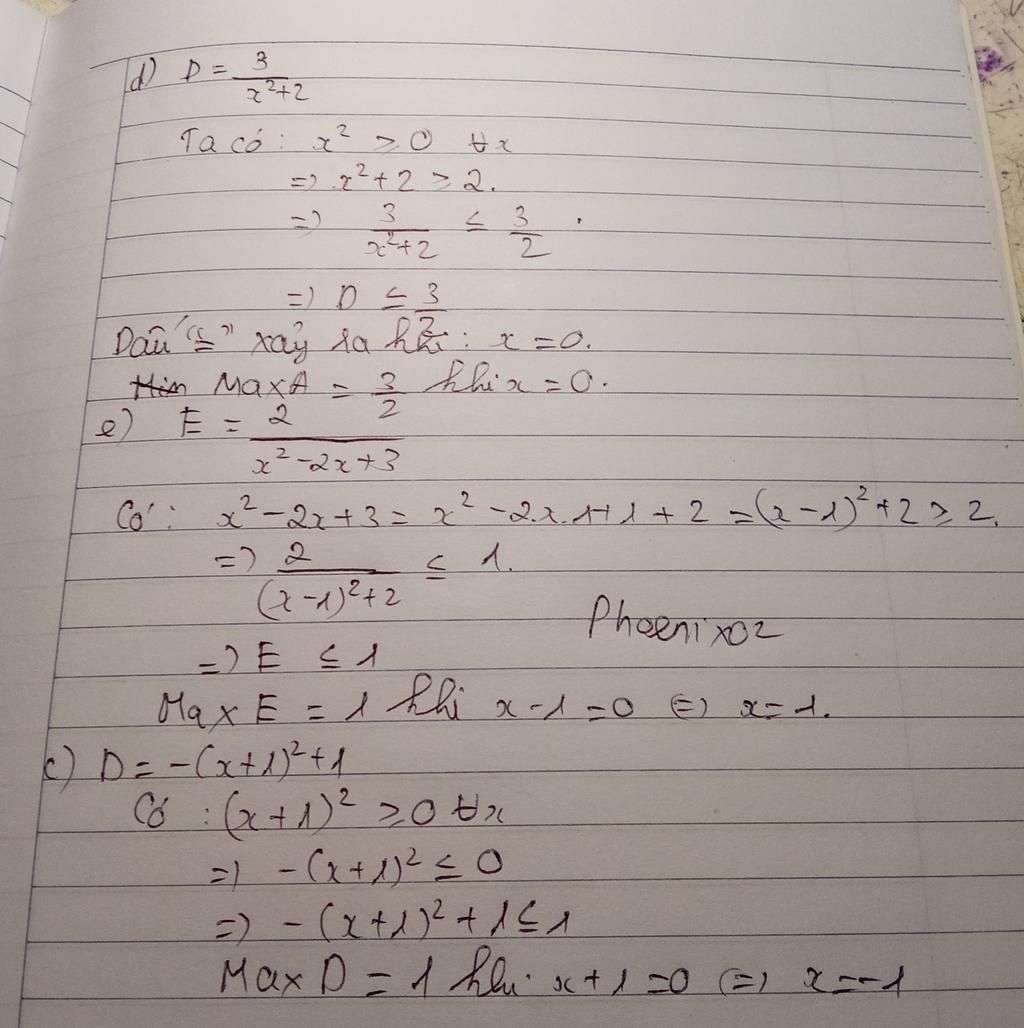 d) D = 3/(x²+2)
Ta có : x² ≥ 0 ∀x
=> x²+2 ≥ 2.
=> 3/(x²+2) ≤ 3/2 .
=> D ≤ 3/2
Dấu "≤" xảy ra khi : x = 0.
Min Max A = 3/2 khi x = 0.
e) E = 2/(x²-2x+3)
Có : x²-2x+3 = x²-2.x.1+1+2 = (x-1)²+2 ≥ 2.
=> 2/((x-1)²+2) ≤ 1.
Phoenix02
=> E ≤ 1
Max E = 1 khi x-1=0 <=> x=1.
c) D = -(x+1)²+1
Có : (x+1)² ≥ 0 ∀x
=> -(x+1)² ≤ 0
=> -(x+1)²+1 ≤ 1
Max D = 1 khi x+1=0 (=) x=-1